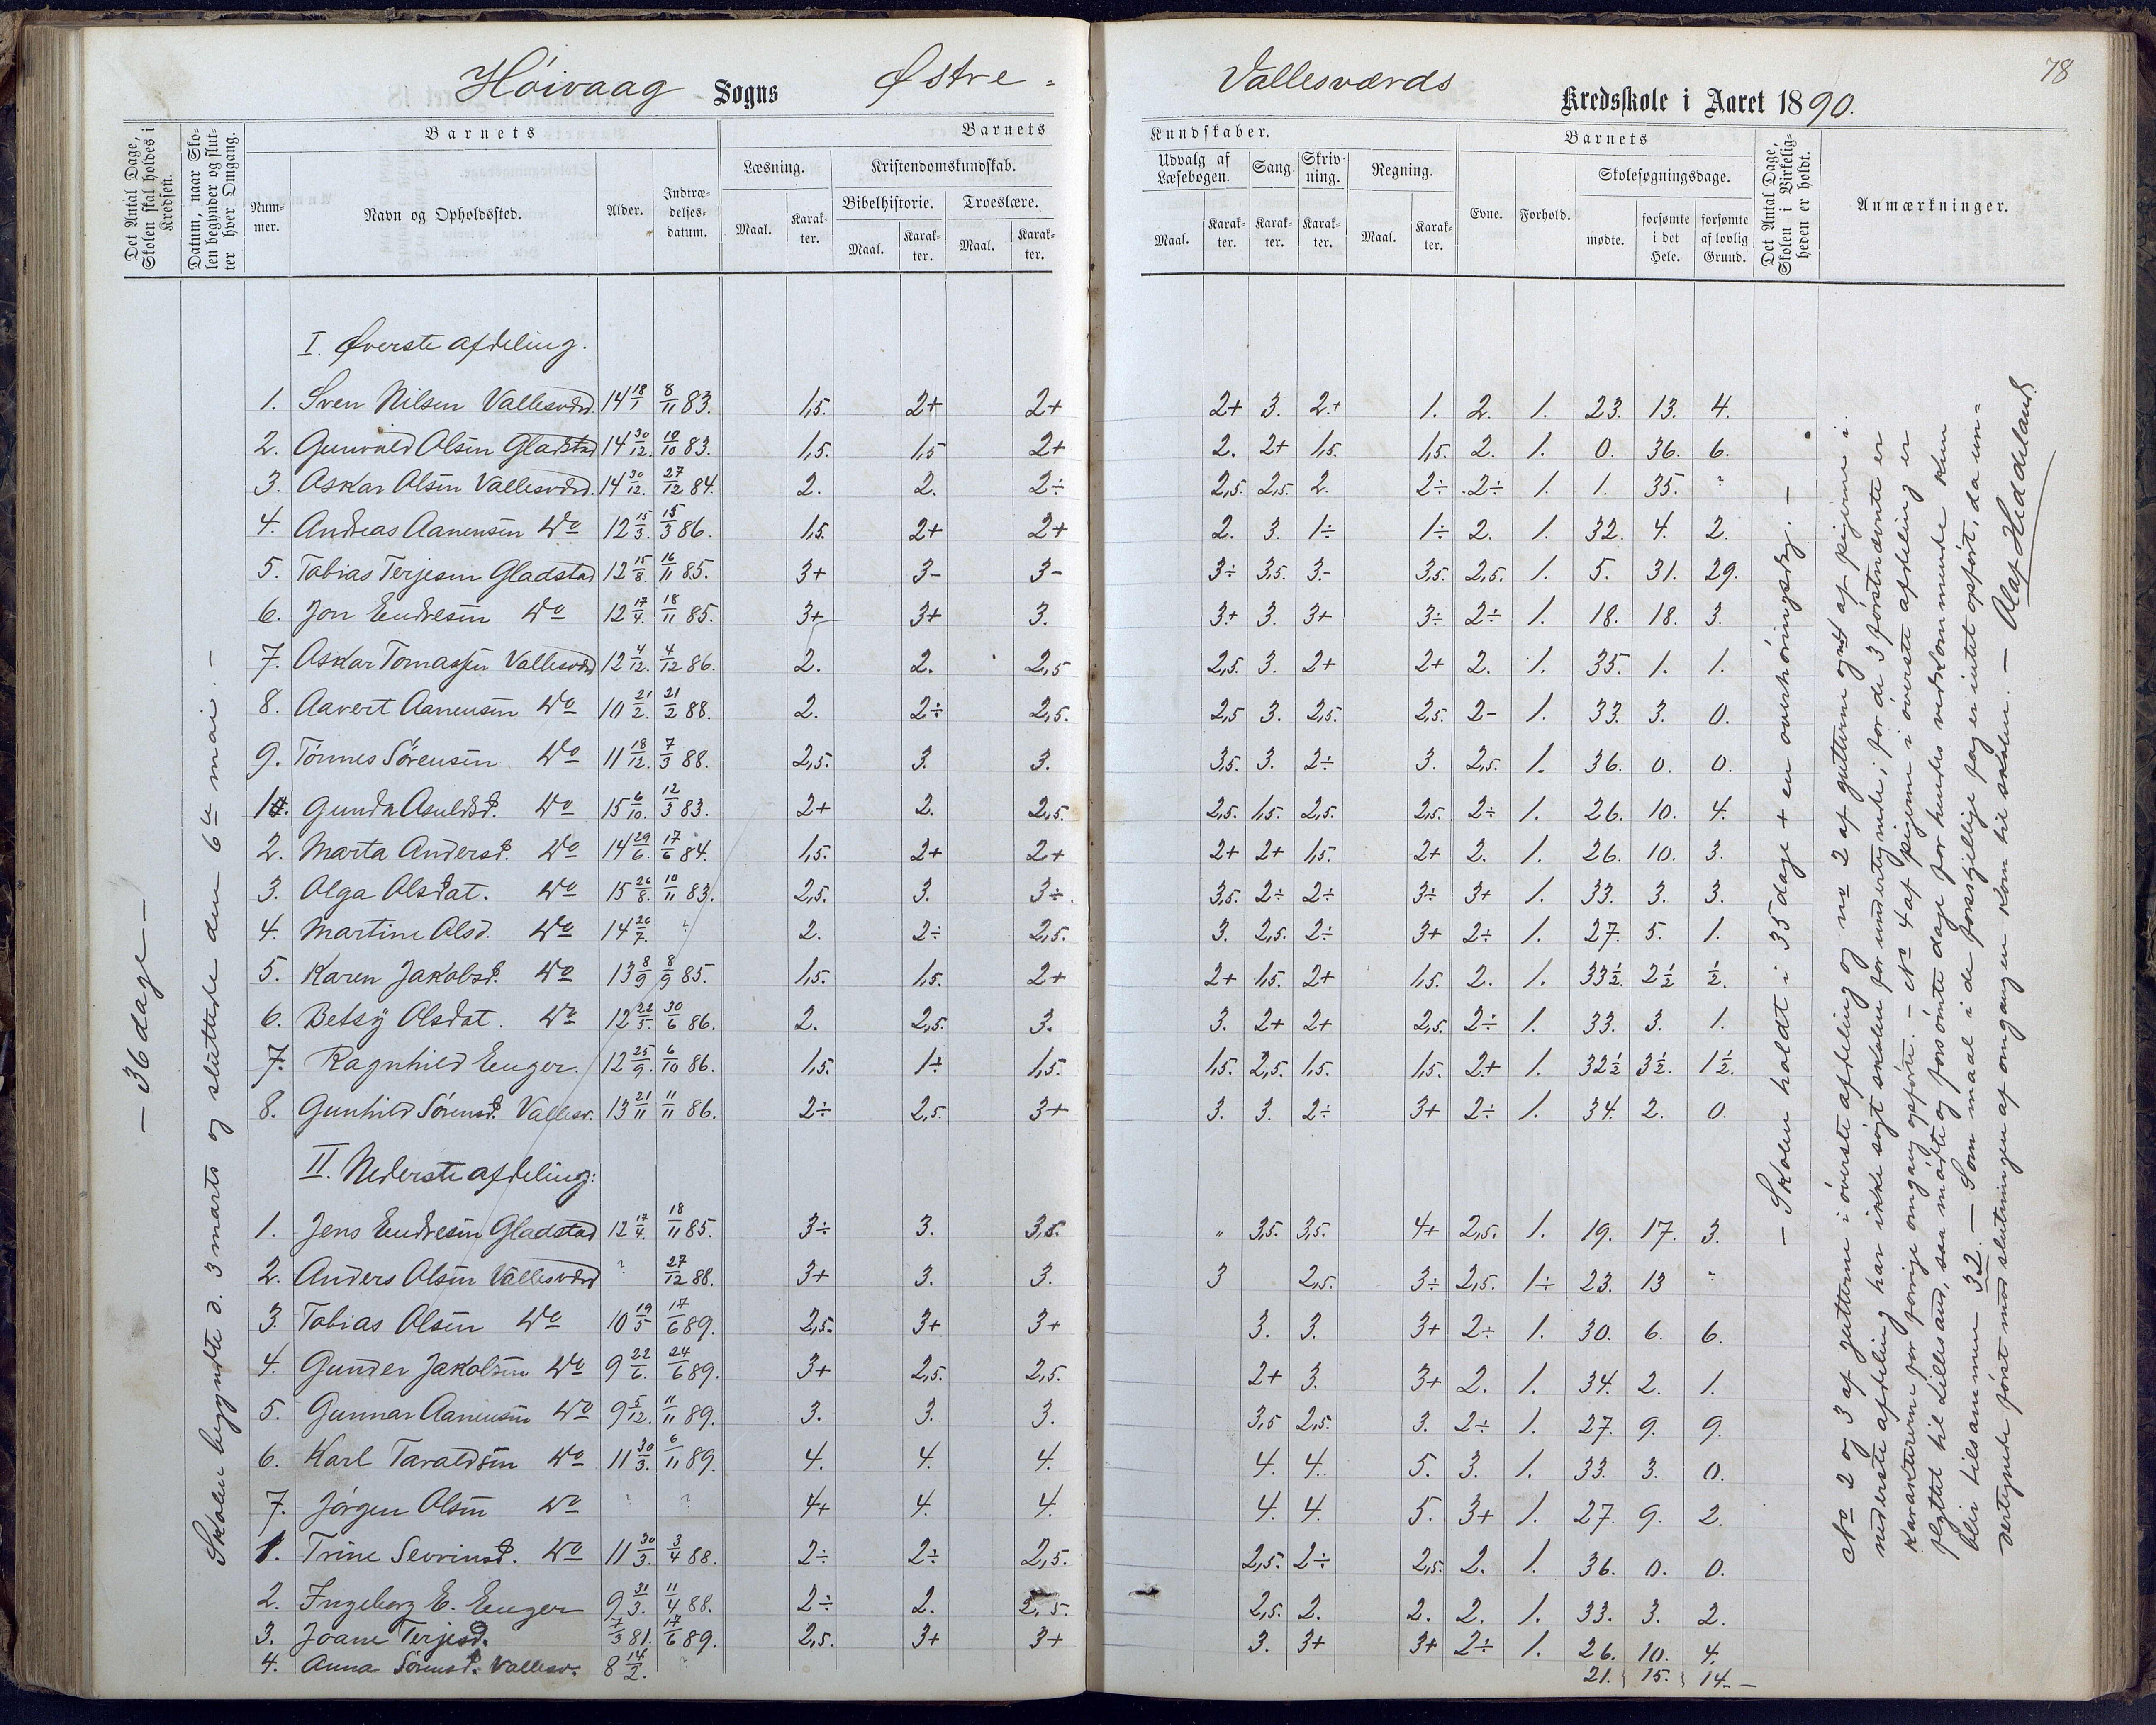 Høivaag Sogns Østre - Vallesværds Kredsskole i Aaret 1890.
78
Det Antal Dage, Skolen skal holdes i Kredsen.
Datum, naar Skolen begynder og slutter hver Omgang.
Barnets
Nummer.
Navn og Opholdssted.
Alder.
Indtrædelsesdatum.
Barnets Kundskaber.
Læsning.
Maal. Karakter.
Kristendomskundskab.
Bibelhistorie.
Maal. Karakter.
Troeslære.
Maal. Karakter.
Udvalg af Læsebogen.
Maal. Karakter.
Sang.
Karakter.
Skrivning.
Karakter.
Regning.
Maal. Karakter.
Barnets
Evne.
Forhold.
Skolesøgningsdage.
mødte.
forsømte i det Hele.
forsømte af lovlig Grund.
Det Antal Dage, Skolen i Virkeligheden er holdt.
Anmærkninger.
— 36 dage —
Skolen begyndte d. 3 marts og sluttede den 6te mai. —
I. Øverste afdeling.
1. Sven Nilsen Vallesværd. 14 18/1 8/11 83. 1,5. 2+ 2+ 2+ 3. 2+ 1. 2. 1. 23. 13. 4.
2. Gunvald Olsen Gladstad 14 30/12. 10/10 83. 1,5. 1,5 2+ 2. 2+ 1,5. 1,5. 2. 1. 0. 36. 6.
3. Askar Olsen Vallesværd. 14 30/12. 27/12 84. 2. 2. 2÷ 2,5. 2,5. 2. 2÷ 2÷ 1. 1. 35. ?
4. Andreas Aanensen Do 12 15/3. 15/3 86. 1,5. 2+ 2+ 2. 3. 1÷ 1÷ 2. 1. 32. 4. 2.
5. Tobias Terjesen Gladstad 12 15/8. 16/11 85. 3+ 3- 3- 3÷ 3,5. 3.- 3,5. 2,5. 1. 5. 31. 29.
6. Jon Endresen Do 12 17/4. 18/11 85. 3+ 3+ 3. 3+ 3. 3+ 3÷ 2÷ 1. 18. 18. 3.
7. Askar Tomassen Vallesværd 12 4/12. 4/12 86. 2. 2. 2,5 2,5. 3. 2+ 2+ 2. 1. 35. 1. 1.
8. Aavert Aanensen Do 10 21/2. 21/2 88. 2. 2÷ 2,5. 2,5 3. 2,5. 2,5. 2- 1. 33. 3. 0.
9. Tønnes Sørensen Do 11 18/12. 7/3 88. 2,5. 3. 3. 3,5. 3. 2÷ 3. 2,5. 1. 36. 0. 0.
1. Gunda Asuldsd. Do 15 6/10. 12/3 83. 2+ 2. 2,5. 2,5. 1,5. 2,5. 2,5. 2÷ 1. 26. 10. 4.
2. Marta Andersd. Do 14 29/6. 17/6 84. 1,5. 2+ 2+ 2+ 2+ 1,5. 2+ 2. 1. 26. 10. 3.
3. Olga Olsdat. Do 15 26/8. 10/11 83. 2,5. 3. 3÷. 3,5. 2÷ 2÷ 3÷ 3+ 1. 33. 3. 3.
4. Martine Olsd. Do 14 26/7. ? 2. 2÷ 2,5. 3. 2,5. 2÷ 3+ 2÷ 1. 27. 5. 1.
5. Karen Jakobsd. Do 13 8/9 8/9 85. 1,5. 1,5. 2+ 2+ 1,5. 2+ 1,5. 2. 1. 33½. 2½ ½.
6. Betsy Olsdat. Do 12 22/5. 30/6 86. 2. 2,5. 3. 3. 2+ 2+ 2,5. 2÷ 1. 33. 3. 1.
7. Ragnhild Enger. 12 25/9. 6/10 86. 1,5. 1÷ 1,5. 1,5. 2,5. 1,5. 1,5. 2+ 1. 32½ 3½. 1½.
8. Gunhild Sørensd. Vallesv. 13 21/11 11/11 86. 2÷ 2,5. 3+ 3. 3. 2÷ 3+ 2÷ 1. 34. 2. 0.
II. Nederste afdeling:
1. Jens Endresen Gladstad 12 17/4. 18/11 85. 3÷ 3. 3,5. " 3,5. 3,5. 4+ 2,5. 1. 19. 17. 3.
2. Anders Olsen Vallesværd ? 27/12 88. 3+ 3. 3. 3 2,5. 3÷ 2,5. 1÷ 23. 13 ?
3. Tobias Olsen Do 10 19/5 17/6 89. 2,5. 3+ 3+ 3. 3. 3+ 2÷ 1. 30. 6. 6.
4. Gunder Jakobsen Do 9 22/6. 24/6 89. 3+ 2,5. 2,5. 2+ 3. 3+ 2. 1. 34. 2. 1.
5. Gunnar Aanensen Do 9 5/12. 11/11 89. 3. 3. 3. 3,5 2,5. 3. 2÷ 1. 27. 9. 9.
6. Karl Taraldsen Do 11 30/3. 6/11 89. 4. 4. 4. 4. 4. 5. 3. 1. 33. 3. 0.
7. Jørgen Olsen Do ? ? 4+ 4. 4. 4. 4. 5. 3+ 1. 27. 9. 2.
1. Trine Sevrinsd. Do 11 30/3. 3/4 88. 2÷ 2÷ 2,5. 2,5. 2÷ 2,5. 2. 1. 36. 0. 0.
2. Ingeborg E. Enger 9 31/3. 11/4 88. 2÷ 2. 2,5. 2,5. 2. 2. 2. 1. 33. 3. 2.
3. Joane Terjesd. 7/3 81. 17/6 89. 2,5. 3+ 3+ 3. 3+ 3+ 2÷ 1. 26. 10. 4.
4. Anna Sørensd. Vallesv. 8 14/2. ? 21. 15. 14. —
— Skolen holdt i 35 dage + en overhøringsdag. —
No 2 og 3 af gutterne i øverste afdeling og no 2 af gutterne og no 4 af pigerne i
nederste afdeling har ikke søgt skolen for undertegnede; for de 3 førstnævnte er
karaktererne for forrige omgang opførte. — No 4 af pigerne i øverste afdeling er
flyttet til Lillesand, saa mødte og forsømte dage for hendes vedkommende kun
blir tilsammen 32. — Som maal i de forskjellige fag er intet opført, da un-
dertegnede først mod slutningen af omgangen kom til skolen. — Olaf Heddeland.